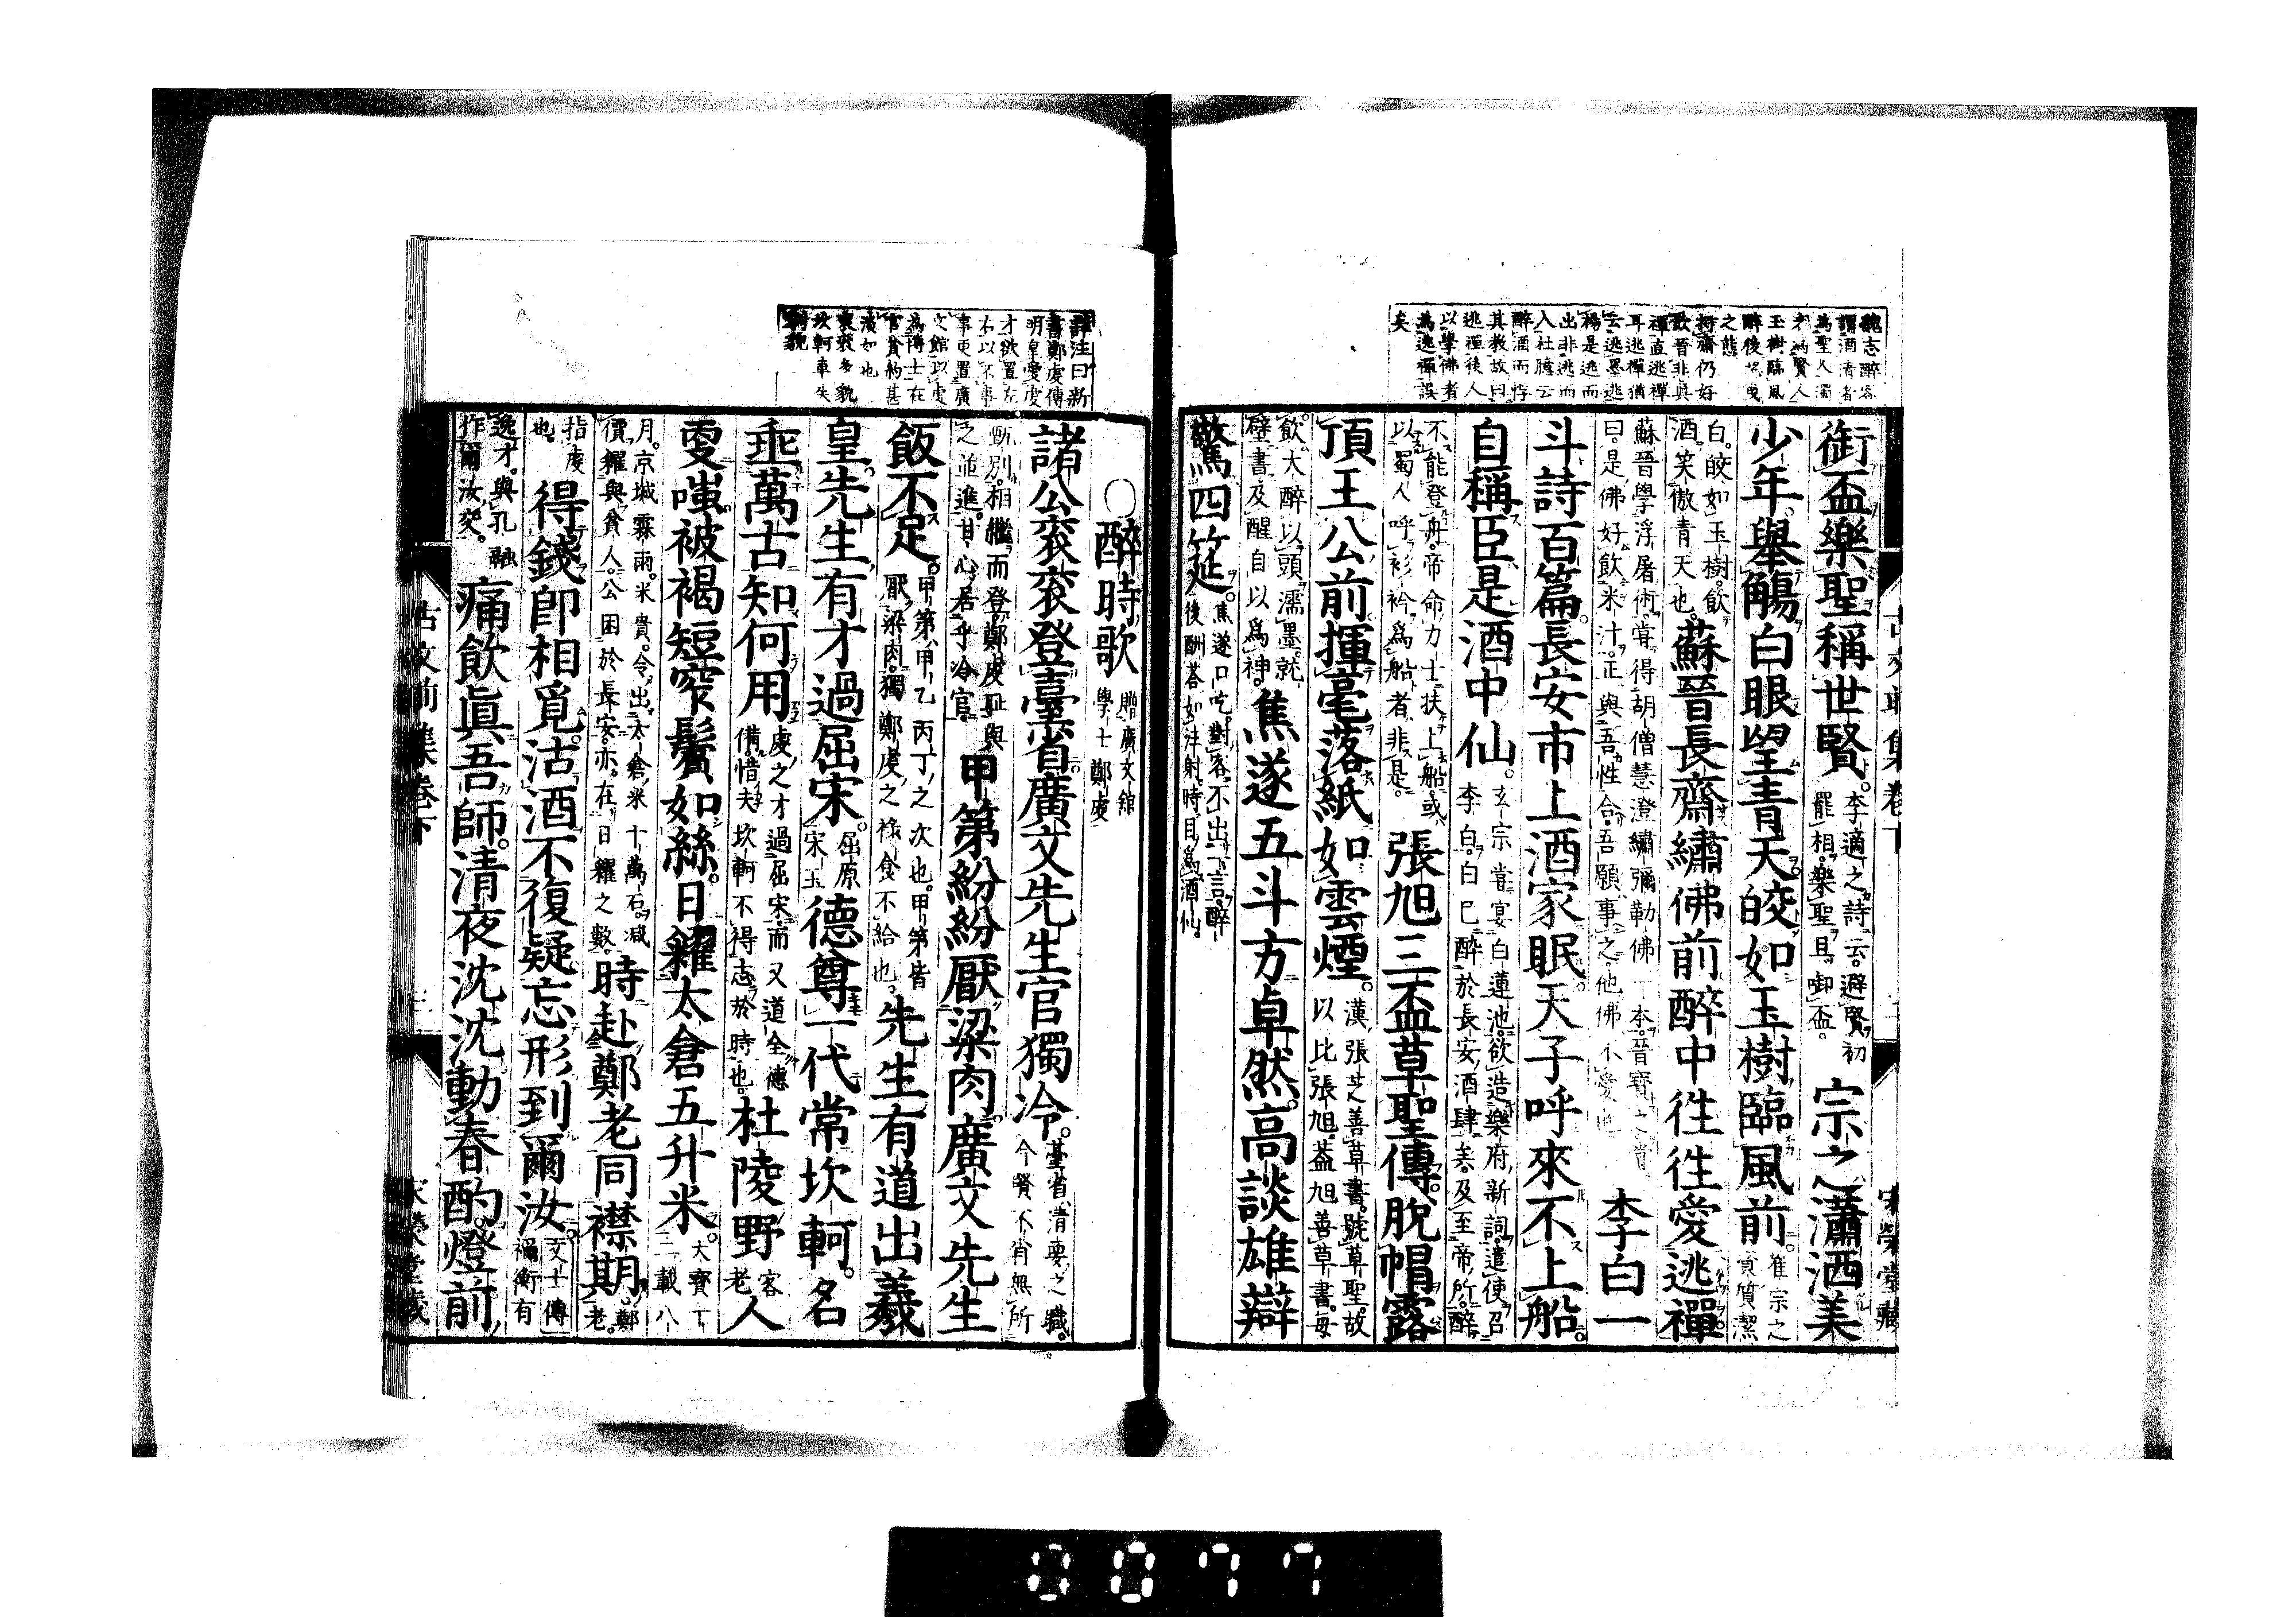 魏志醉客
謂酒清者
為聖人濁
者為賢人
玉樹臨風
醉後
之態
持齋仍好
飲晉非真
禪直逃禪
耳逃禪猶
云逃墨逃
楊是逃而
出非逃而
入杜臆云
醉酒而悖
其教故曰
逃禪後人
以學佛者
為逃禪誤
矣
銜盃樂聖稱世賢李適之詩云避賢初
罷相樂聖且啣盃宗之瀟洒美
少年擧觴白眼望青天皎如玉樹臨風前崔宗之
資質潔
白皎如玉樹飲
酒笑傲青天也蘇晉長齋繡佛前醉中徃徃愛逃禪
蘇晉學浮屠術嘗得胡僧慧澄繡彌勒佛一本晉寶之嘗
曰是佛好飲米汁正與吾性合吾願事之他佛不愛也李白一
斗詩百篇長安市上酒家眠天子呼來不上船
自稱臣是酒中仙玄宗嘗宴白蓮池欲造樂府新詞遣使召
李白白已醉於長安酒肆矣及至帝所醉
不能登舟帝命力士扶上船或
以蜀人呼衫衿為船者非是張旭三盃草聖傳脫帽露
頂王公前揮毫落紙如雲煙漢張芝善草書號草聖故
以比張旭蓋旭善草書每
飲大醉以頭濡墨就
壁書及醒自以為神焦遂五斗方卓然高談雄辯
驚四筵焦遂口吃對客不出一言醉
後酬荅如注射時目為酒仙
古文前集卷下
宋榮堂藏
詳注曰新
書鄭虔傳
明皇愛虔
才欲置左
右以不事
事更置廣
文館以虔
為博士在
官貧約甚
澹如也
袞袞多貌
坎軻車失
○醉時歌贈廣文館
學士鄭虔
諸公袞袞登臺省廣文先生官獨冷臺省清要之職
今賢不肖無所
甄別相繼而登鄭虔恥與
之並進甘心居乎冷官甲第紛紛厭粱肉廣文先生
飯不足甲第甲乙丙丁之次也甲第皆
厭粱肉獨鄭虔之祿食不給也先生有道出羲
皇先生有才過屈宋屈原
宋玉德尊一代常坎軻名
垂萬古知何用虔之才過屈宋而又道全德
備惜夫坎軻不得志於時也杜陵野客
老人
更嗤被褐短窄鬢如絲日糴太倉五升米天寶十
二載八
月京城霖雨米貴令出太倉米十萬石减
價糶與貧人公困於長安亦在日糴之數時赴鄭老同襟期鄭
老
指虔
也得錢卽相覓沽酒不復疑忘形到爾汝文士傳
禰衡有
逸才與孔融
作爾汝交痛飲眞吾師清夜沈沈動春酌燈前
古文前集卷下
三
宋榮堂藏
0077